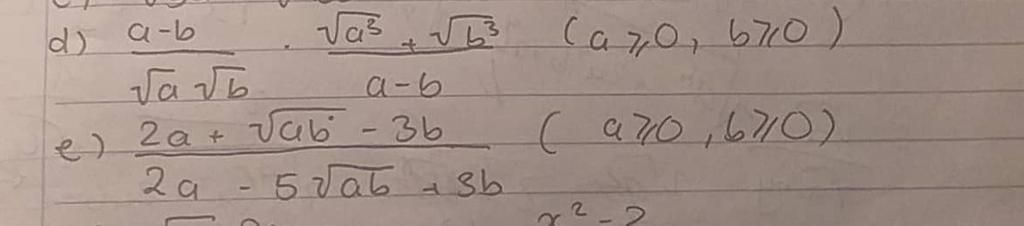 d) a-b / √a √b . √a³ + √b³ / a-b (a ⩾ 0, b ⩾ 0)
e) 2a + √ab - 3b / 2a - 5√ab + 3b (a ⩾ 0, b ⩾ 0)
x² - 2